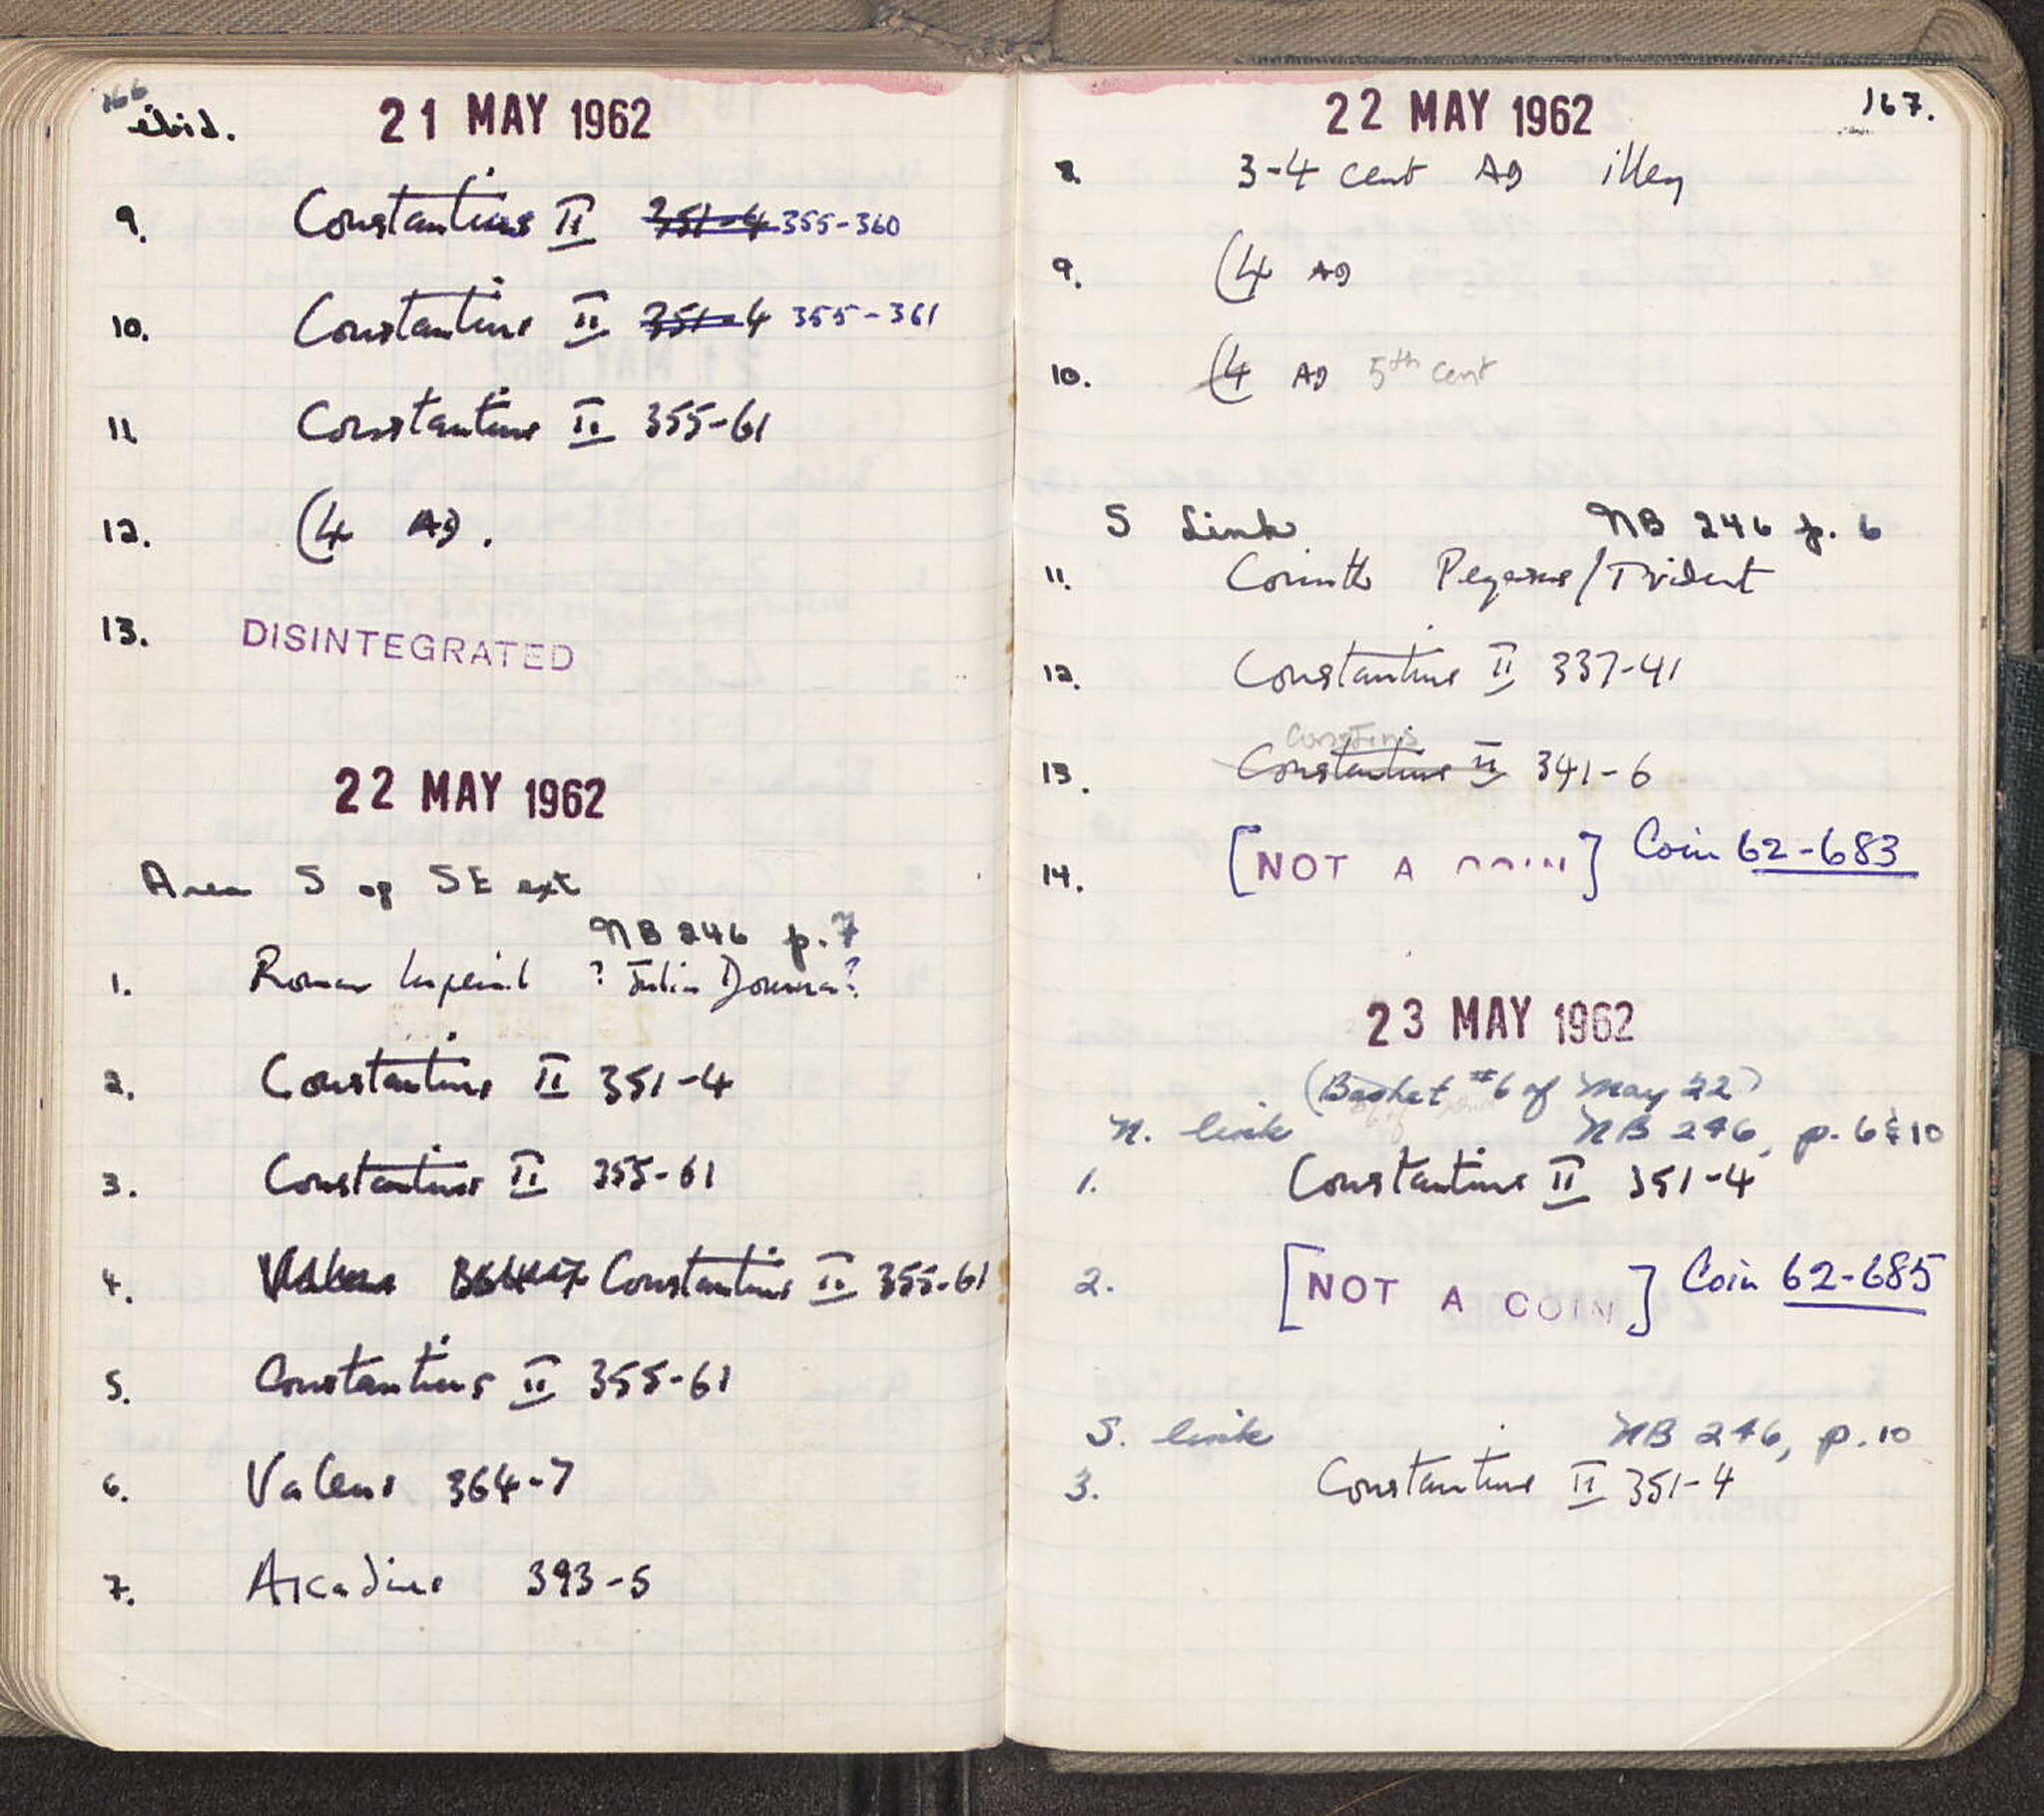 166
ibid.
21 MAY 1962
9. Constantius II 351-4 355-360
10. Constantius II 351-4 355-361
11 Constantius II 355-61
12. C4 AD.
13. DISINTEGRATED
22 MAY 1962
Area S of SE ext
NB 246 p. 7
1. Roman Imperial ? Julia Domna?
2. Constantius II 351-4
3. Constantius II 355-61
4. Valens 364-7 Constantius II 355-61
5. Constantius II 355-61
6. Valens 364-7
7. Arcadius 393-5
22 MAY 1962
167.
8. 3-4 cent AD illeg
9. C4 AD
10. C4 AD 5th cent
S Link NB 246 p. 6
11. Corinth Pegasus/Trident
12. Constantius II 337-41
Constans
13. Constantius II 341-6
14. [NOT A COIN] Coin 62-683
23 MAY 1962
(Basket #6 of May 22)
N. link NB 246, p. 6 & 10
1. Constantius II 351-4
2. [NOT A COIN] Coin 62-685
S. link NB 246, p. 10
3. Constantius II 351-4